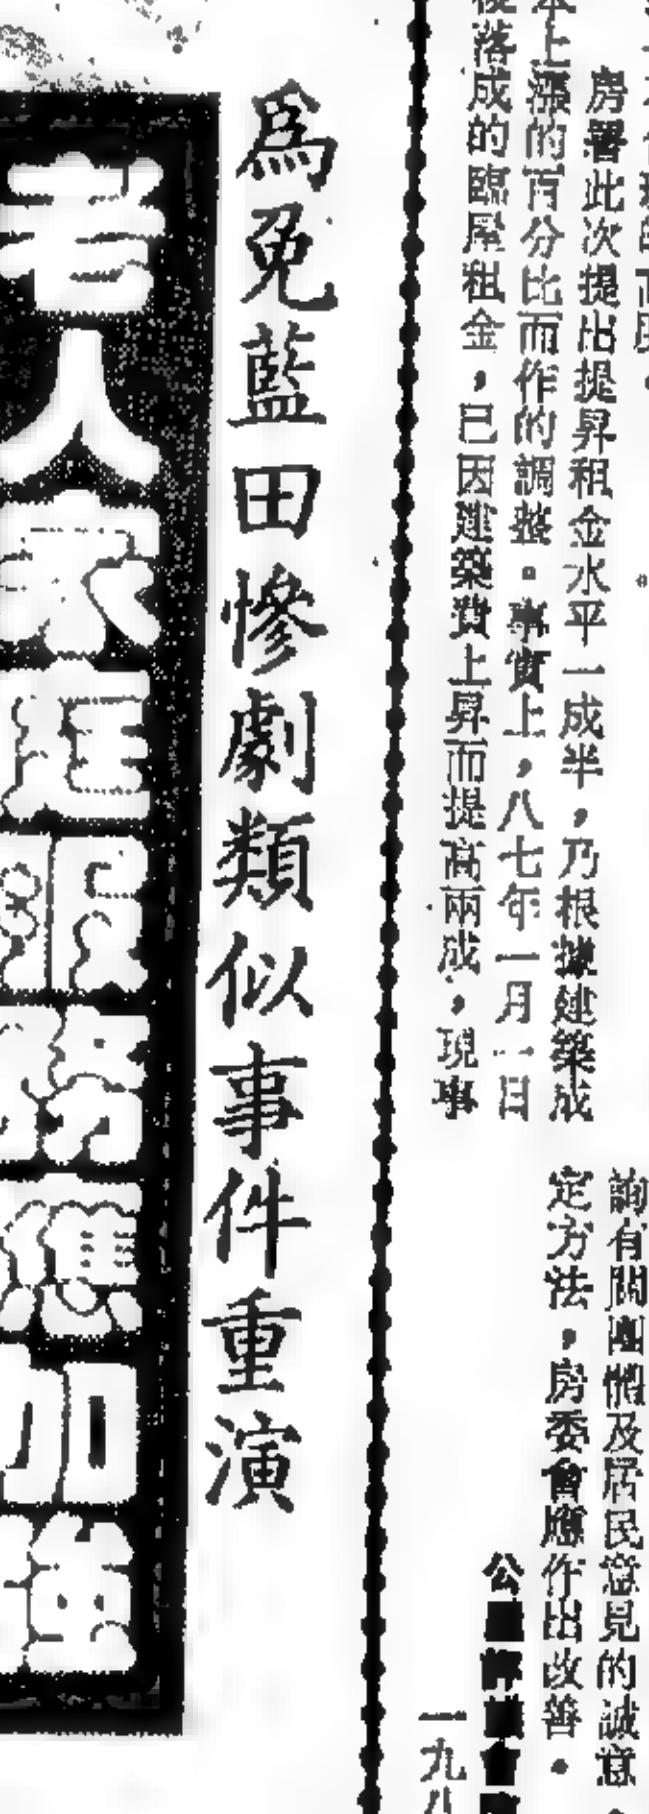 房署此次提出提昇租金水平一成半，乃根據建築成
本上漲的百分比而作的調整。事實上，八七年一月一日
後落成的臨屋租金，已因建築費上昇而提高兩成，現事
詢有關團體及居民意見的誠意。
定方法，房委會應作出改善。
公
一九八
為免藍田慘劇類似事件重演
老人家庭服務應加強